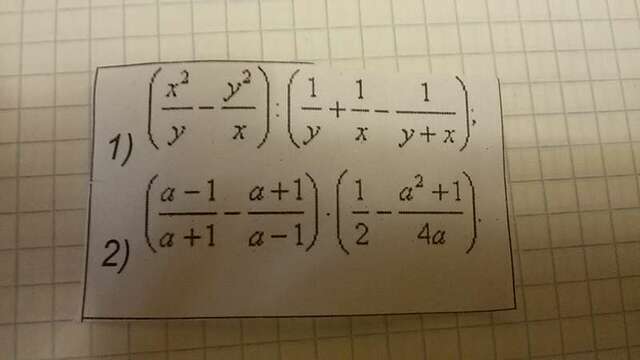 1) (x²/y − y²/x) : (1/y + 1/x − 1/(y + x));
2) ((a − 1)/(a + 1) − (a + 1)/(a − 1)) · (1/2 − (a² + 1)/4a).